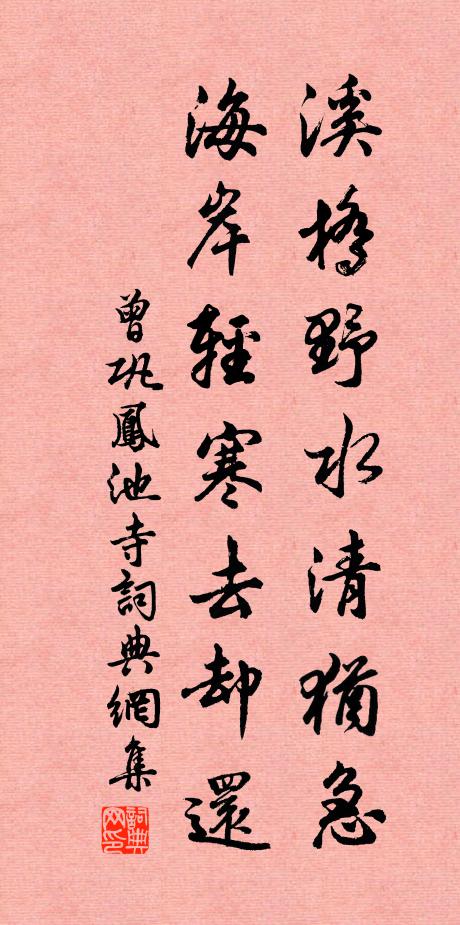 溪橋野水清猶急
海岸輕寒去却還
曾巩鳳池寺詞典網集
詞典網印